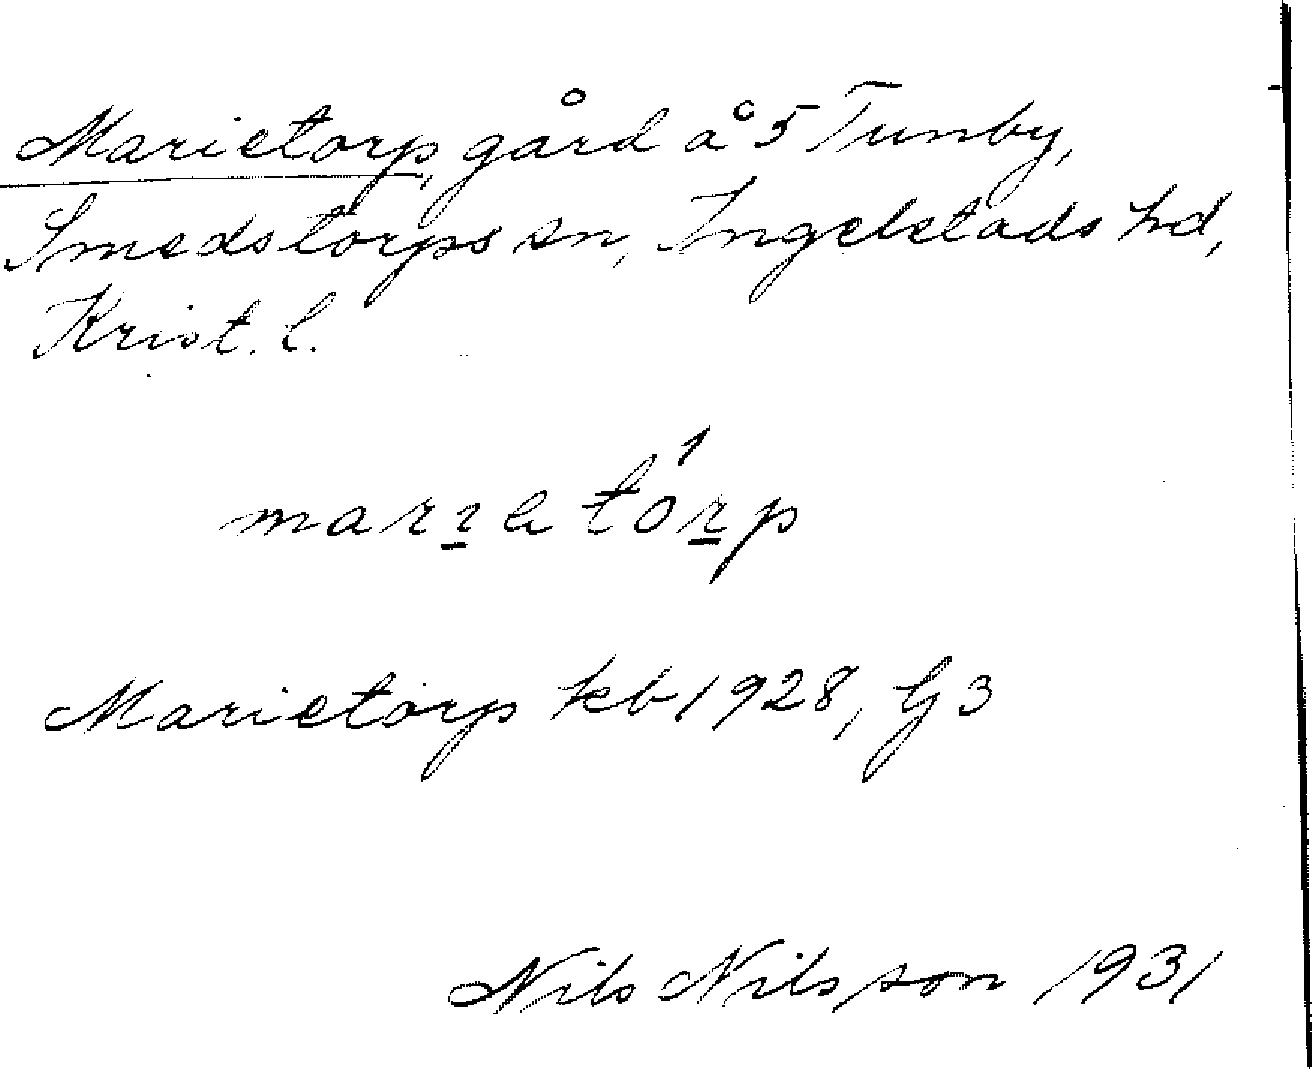 Marietorp, gård å 5 Tunby,
Smedstorps sn, Ingelstads hd,
Krist. l.
Marietorp kb 1928, G 3
Nils Nilsson 1931